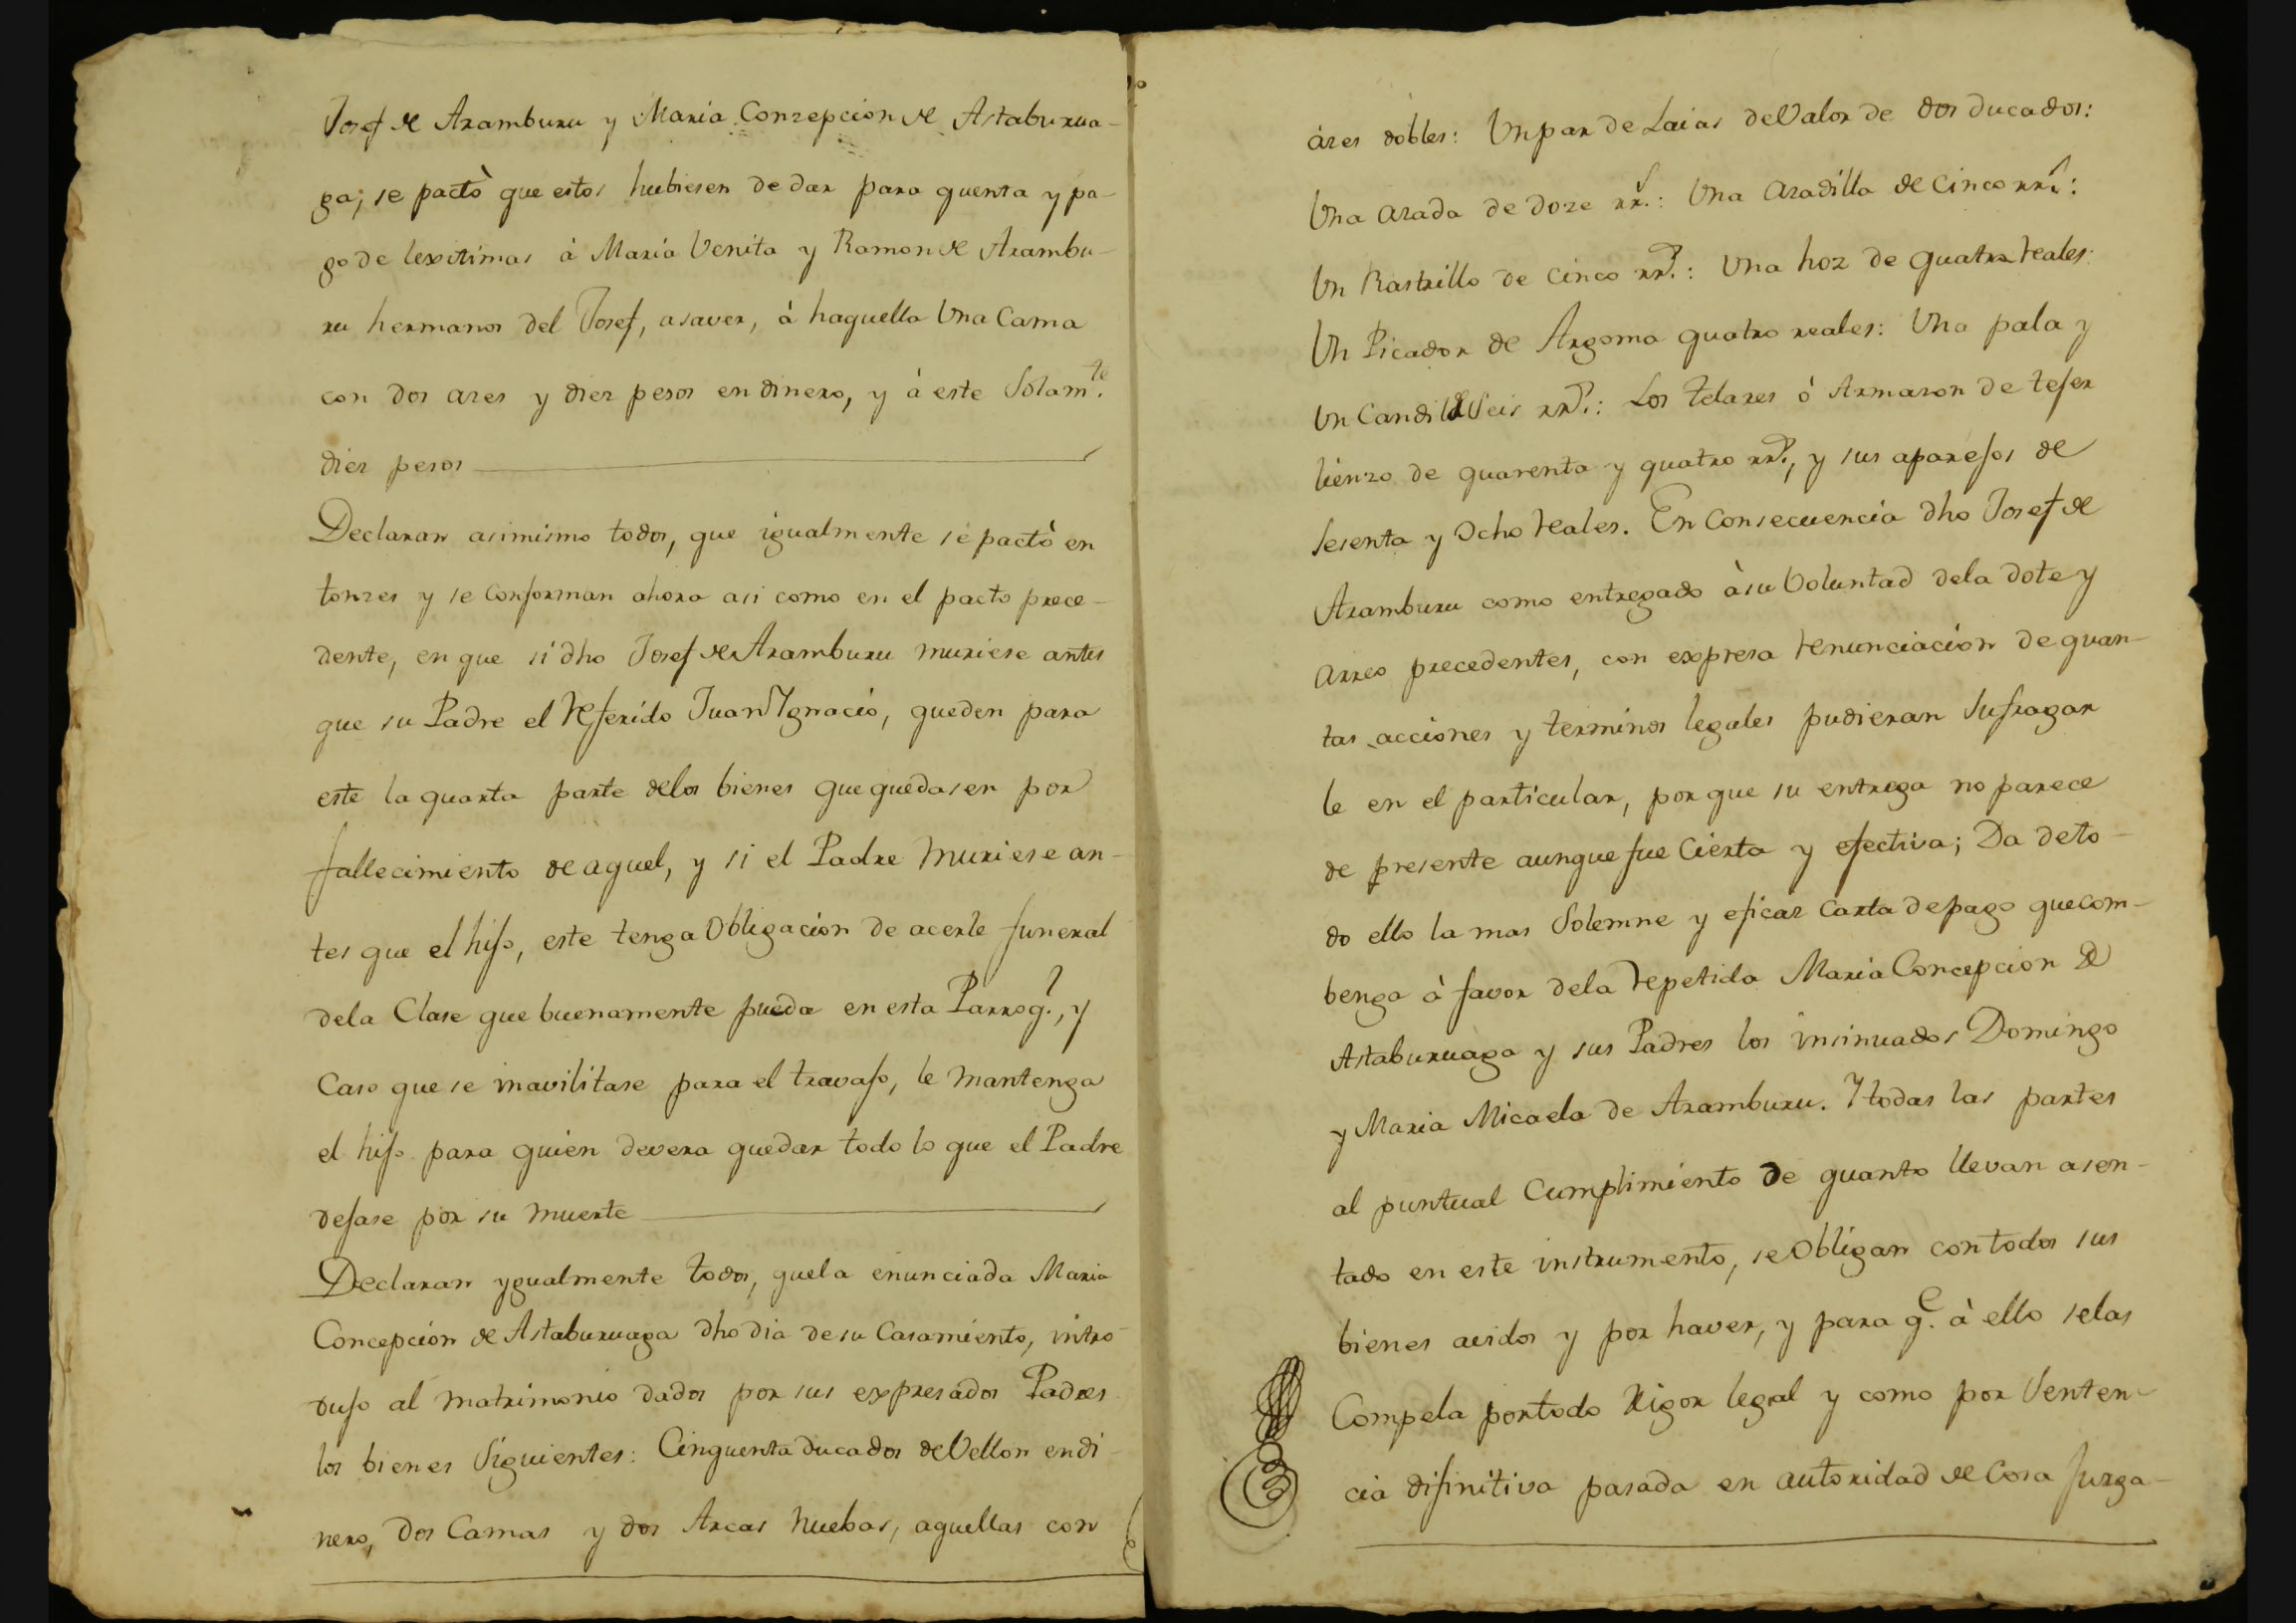 Josef de Aramburu y Maria Conzepcion de Astaburua-
ga; se pactò que estos hubiesen de dar para quenta y pa-
go de lexitimas à Maria Venita y Ramon de Arambu-
ru hermanos del Josef, asaver, à haquella Una Cama
con dos azes y diez pesos en dinero, y à este Solam.te
diez pesos
Declaran asimismo todos, que igualmente se pactò en
tonzes y se Conforman ahora asi como en el pacto prece-
dente, en que si dho Josef de Aramburu muriese antes
que su Padre el Referido Juan Ygnacio, queden para
este la quarta parte delos bienes que quedasen por
fallecimiento de aquel, y si el Padre muriese an-
tes que el hijo, este tenga Obligacion de acerle funeral
dela Clase que buenamente pueda en esta Parroq.a, y
Caso que se inavilitase para el travajo, le mantenga
el hijo para quien devera quedar todo lo que el Padre
dejase por su muerte
Declaran ygualmente todos, quela enunciada Maria
Concepcion de Astaburuaga dho dia de su Casamiento, intro-
dujo al matrimonio dados por sus expresados Padres
los bienes Siguientes: Cinquenta ducados de Vellon en di-
nero, dos Camas y dos Arcas nuebas, aquellas con
àzes dobles: Un par de Laias de Valor de dos ducados:
Una Azada de doze rr.s: Una Azadilla de Cinco rr.s:
Un Rastrillo de Cinco rr.s: Una hoz de quatro reales:
Un Picador de Argoma quatro reales: Una pala y
Un Candil de Seis rr.s: Los telares ò Armazon de tejer
lienzo de quarenta y quatro rr.s, y sus aparejos de
Sesenta y Ocho reales. En Consecuencia dho Josef de
Aramburu como entregado à su Voluntad dela dote y
Arreo precedentes, con expresa renunciacion de quan-
tas acciones y terminos legales pudieran Sufragar
le en el particular, por que su entrega no parece
de presente aunque fue Cierta y efectiva; Da de to-
do ello la mas Solemne y eficaz Carta de pago que com-
benga à favor dela repetida Maria Concepcion de
Astaburuaga y sus Padres los insinuados Domingo
y Maria Micaela de Aramburu. Y todas las partes
al puntual Cumplimiento de quanto llevan asen-
tado en este instrumento, se Obligan con todos sus
bienes avidos y por haver, y para q.e à ello selas
Compela por todo Rigor legal y como por Senten-
cia difinitiva pasada en autoridad de Cosa juzga-